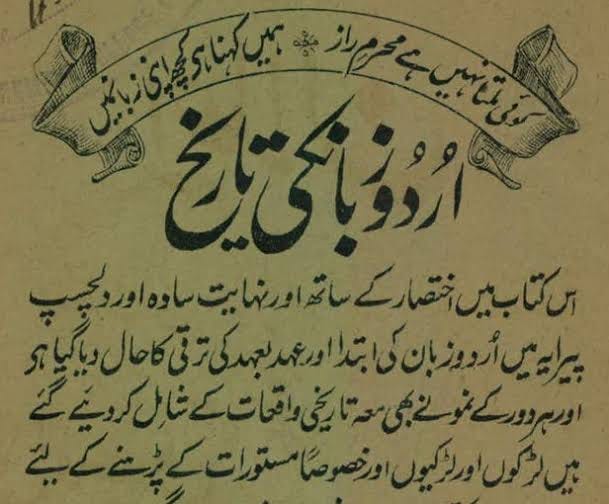 کوئی ملتا نہیں ہے محرمِ راز ہمیں کہنا ہی کچھ اپنی زبانمیں
اُردُو زبانکی تاریخ
اس کتاب میں اختصار کے ساتھ اور نہایت سادہ اور دلچسپ
پیرایہ میں اُردو زبان کی ابتدا اور عہد بعہد کی ترقی کا حال دیا گیا ہی
اور ہر دور کے نمونے بھی معہ تاریخی واقعات کے شامل کر دیئے گئے
ہیں لڑکوں اور لڑکیوں اور خصوصاً مستورات کے پڑہنے کے لیئے